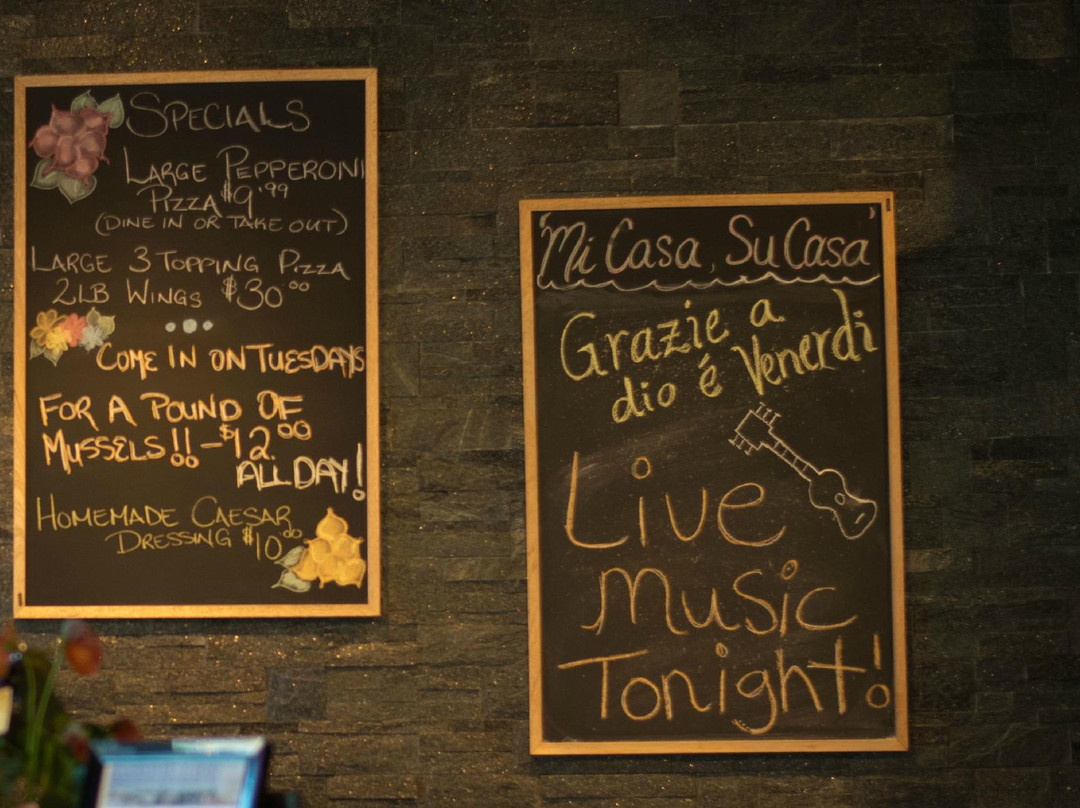 SPECIALS
LARGE PEPPERONI
PIZZA $9.99
(DINE IN OR TAKE OUT)
LARGE 3 TOPPING PIZZA
2LB WINGS $30.00
COME IN ON TUESDAYS
FOR A POUND OF
MUSSELS!! - $12.00
ALL DAY!
HOMEMADE CAESAR
DRESSING $10.00
'Mi Casa, Su Casa'
Grazie a
dio é Venerdi
Live
Music
Tonight!